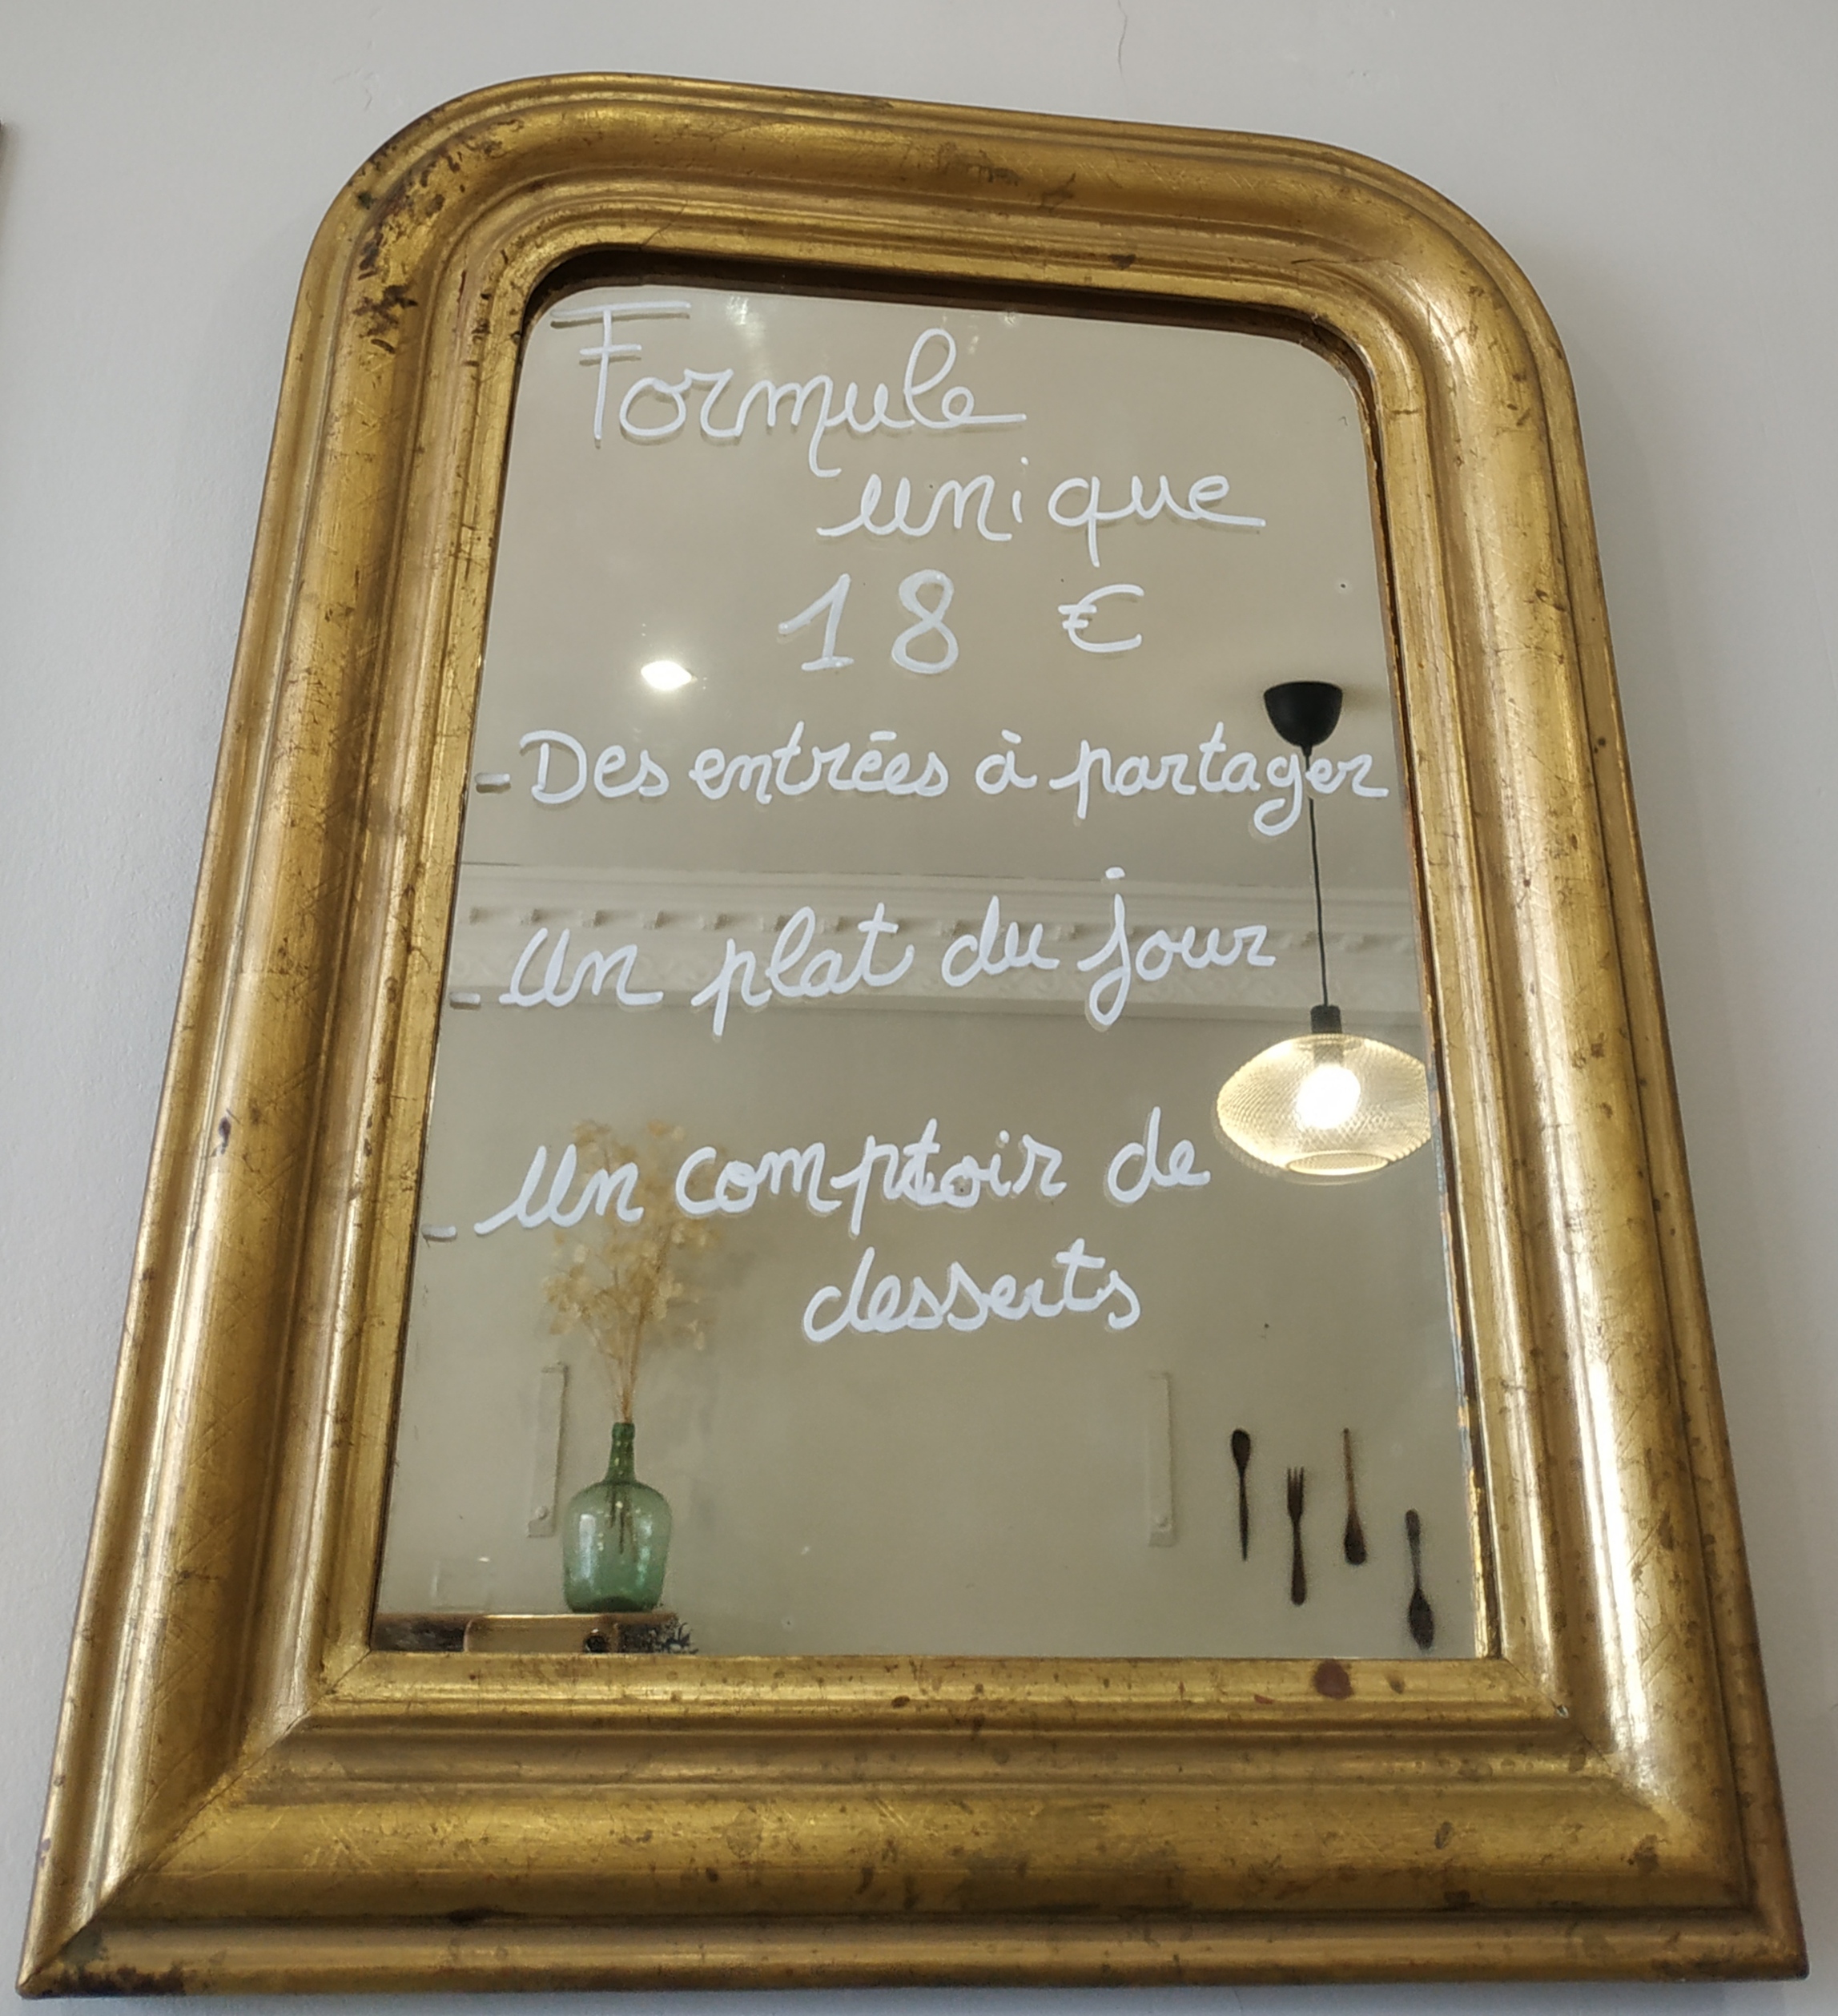 Formule
unique
18 €
- Des entrées à partager
- Un plat du jour
- Un comptoir de
desserts